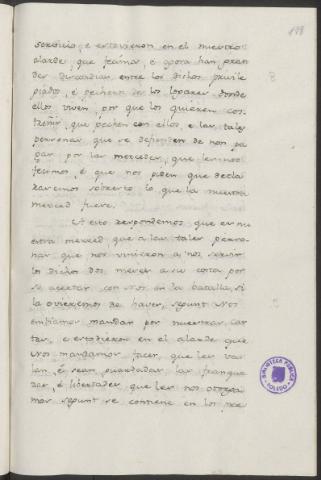 118
servicio, e estovieron en el nuestro
alarde, que fecimos, é agora han pren
der discordias entre los dichos privile
giados, é pecheros de los logares donde
ellos viven, por que los quieren cos
treñir, que pechen con ellos, e las tales
personas que se defienden de non pa
gar por las mercedes, que les nos
fecimos, é que nos piden que decla
raremos sobrello lo que la nuestra
merced fuere.
A esto respondemos que es nu
estra merced, que a las tales perso
nas que nos vinieron a nos servir
los dichos dos meses a su costa por
se acertar con nos en la batalla, si
la ovieremos de haver, segunt nos
embiamos mandar por nuestras car
tas, e estodieron en el alarde que
nos mandamos facer, que les va
lan, é sean guardadas las franque
zas, é libertades, que les nos otorga
mos segunt se contiene en los pre
BIBLIOTECA PÚBLICA
TOLEDO